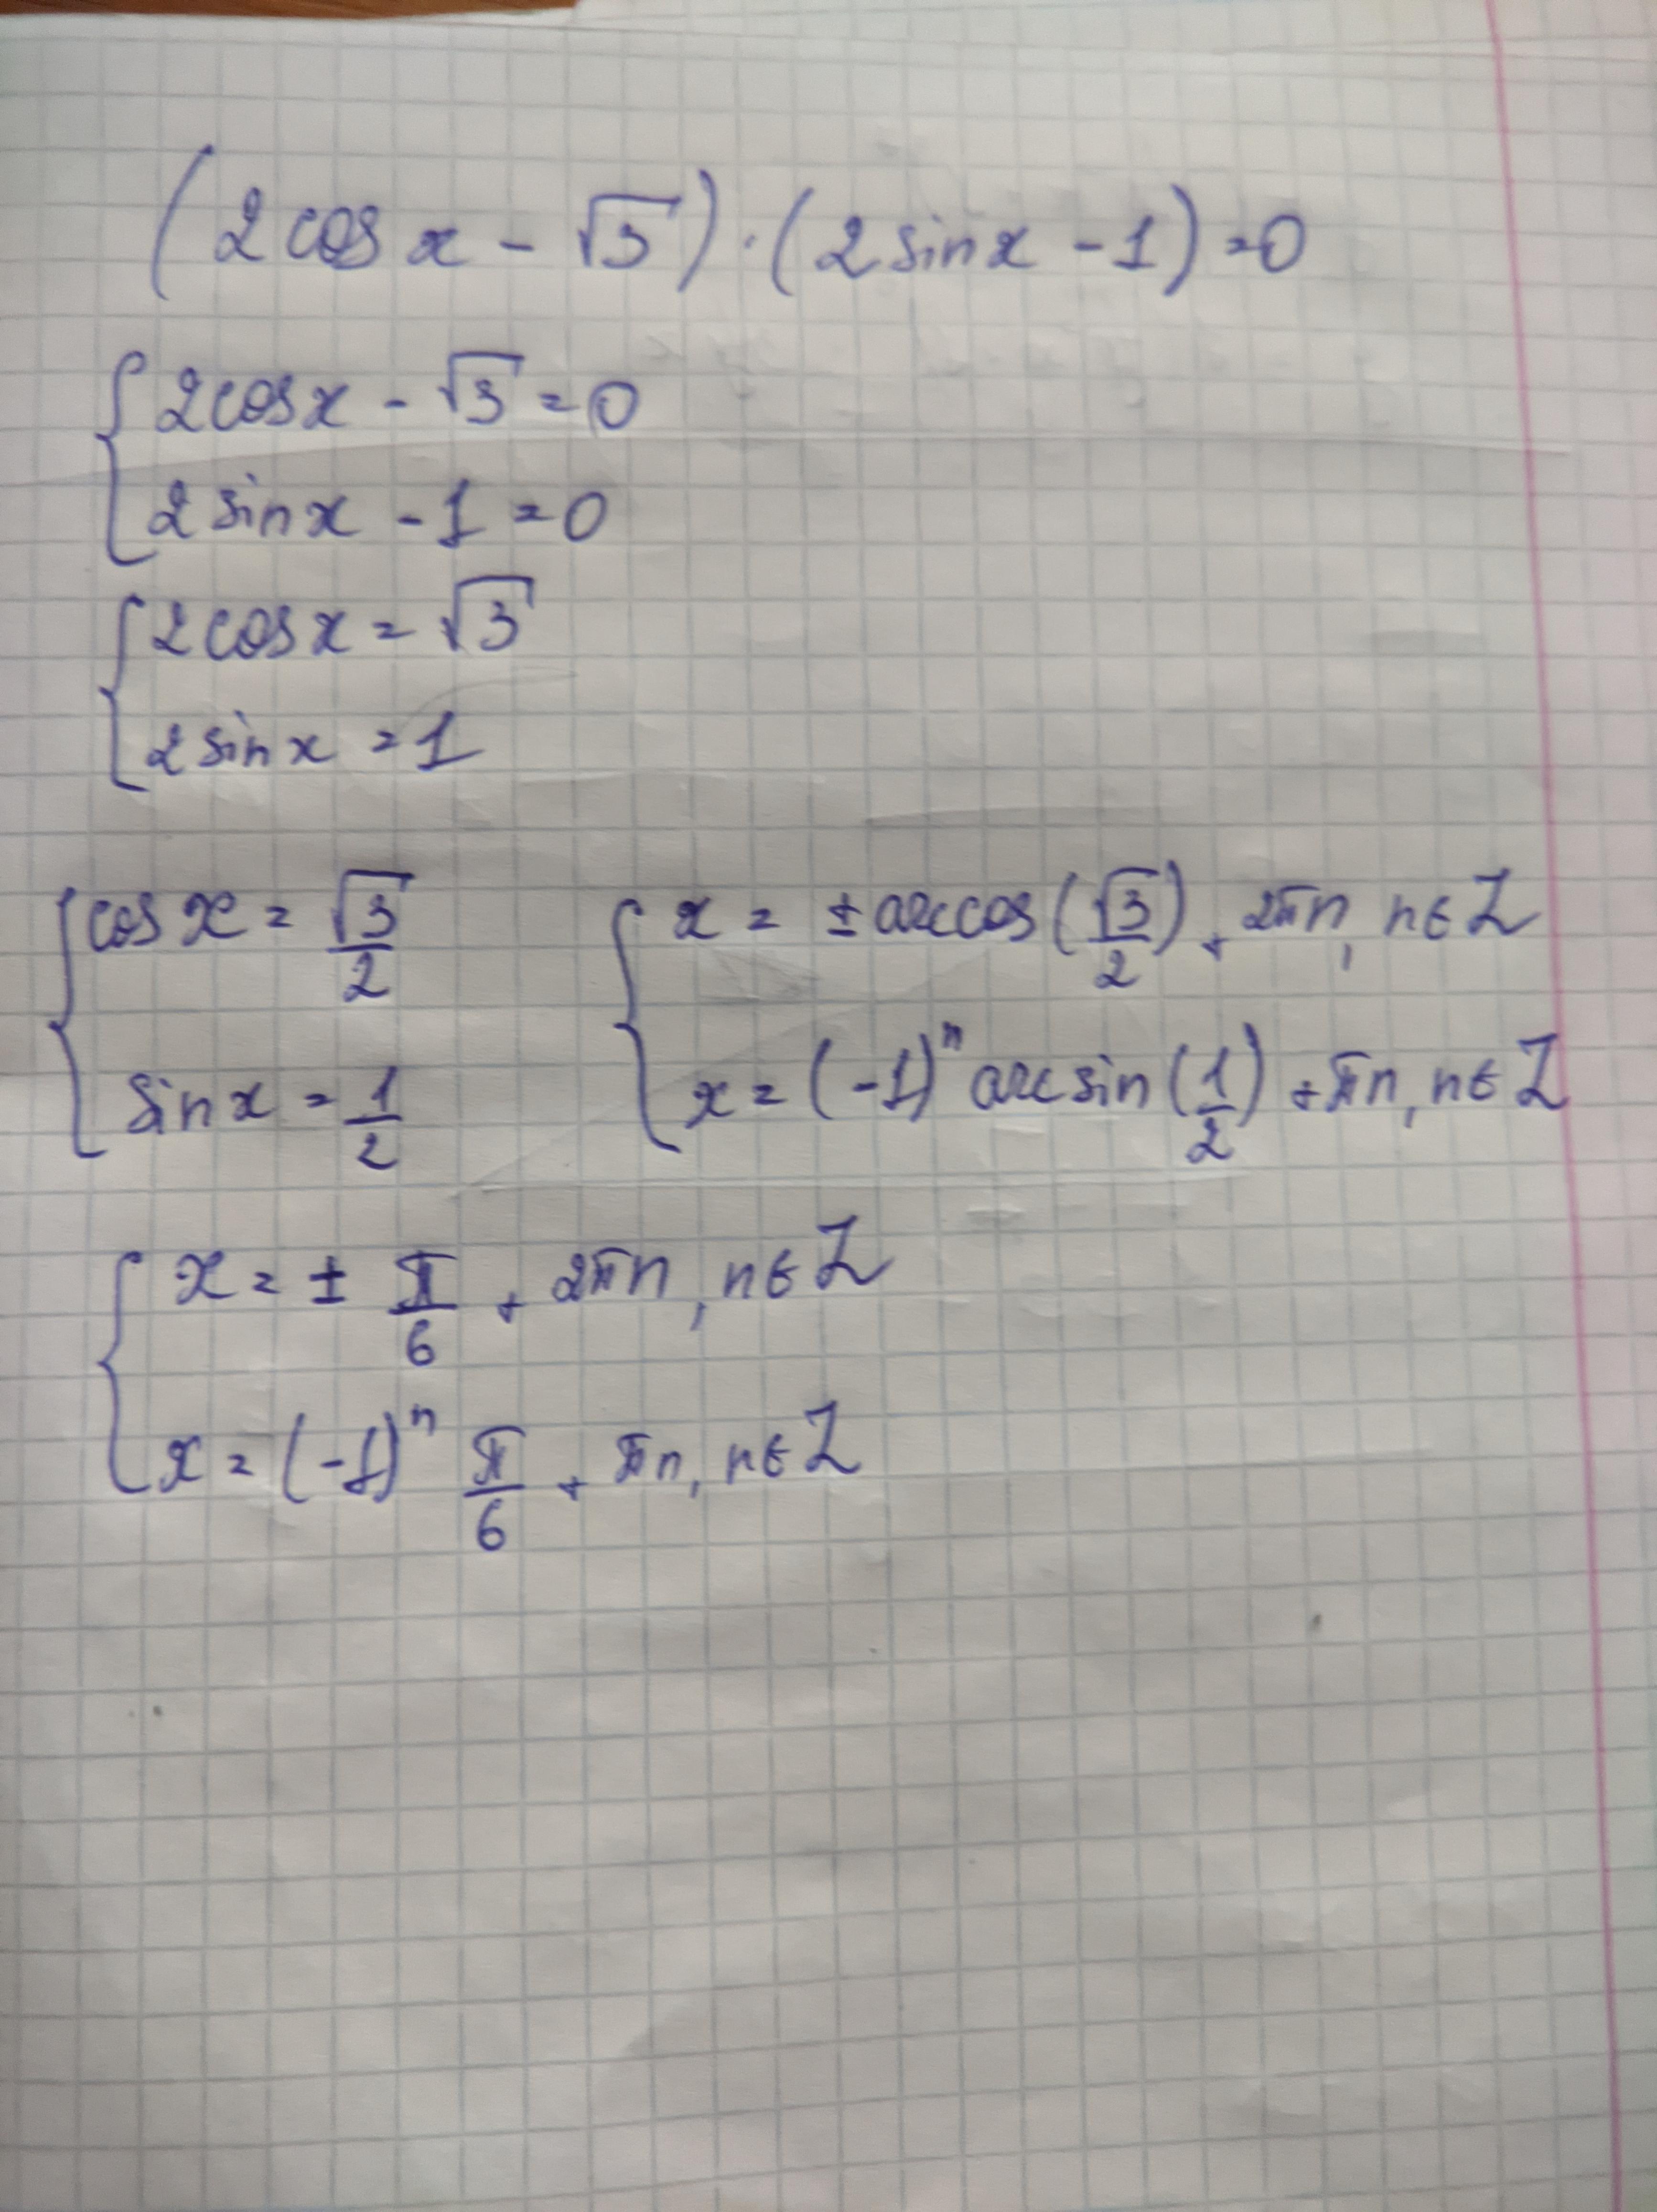 (2cos x - √3) · (2sin x - 1) = 0
{ 2cos x - √3 = 0
2 sin x - 1 = 0
{ 2cos x = √3
2 sin x = 1
{ cos x = √3/2
sin x = 1/2
{ x = ± arccos(√3/2) + 2πn, n ∈ Z
x = (-1)ⁿ arcsin(1/2) + πn, n ∈ Z
{ x = ± π/6 + 2πn, n ∈ Z
x = (-1)ⁿ π/6 + πn, n ∈ Z